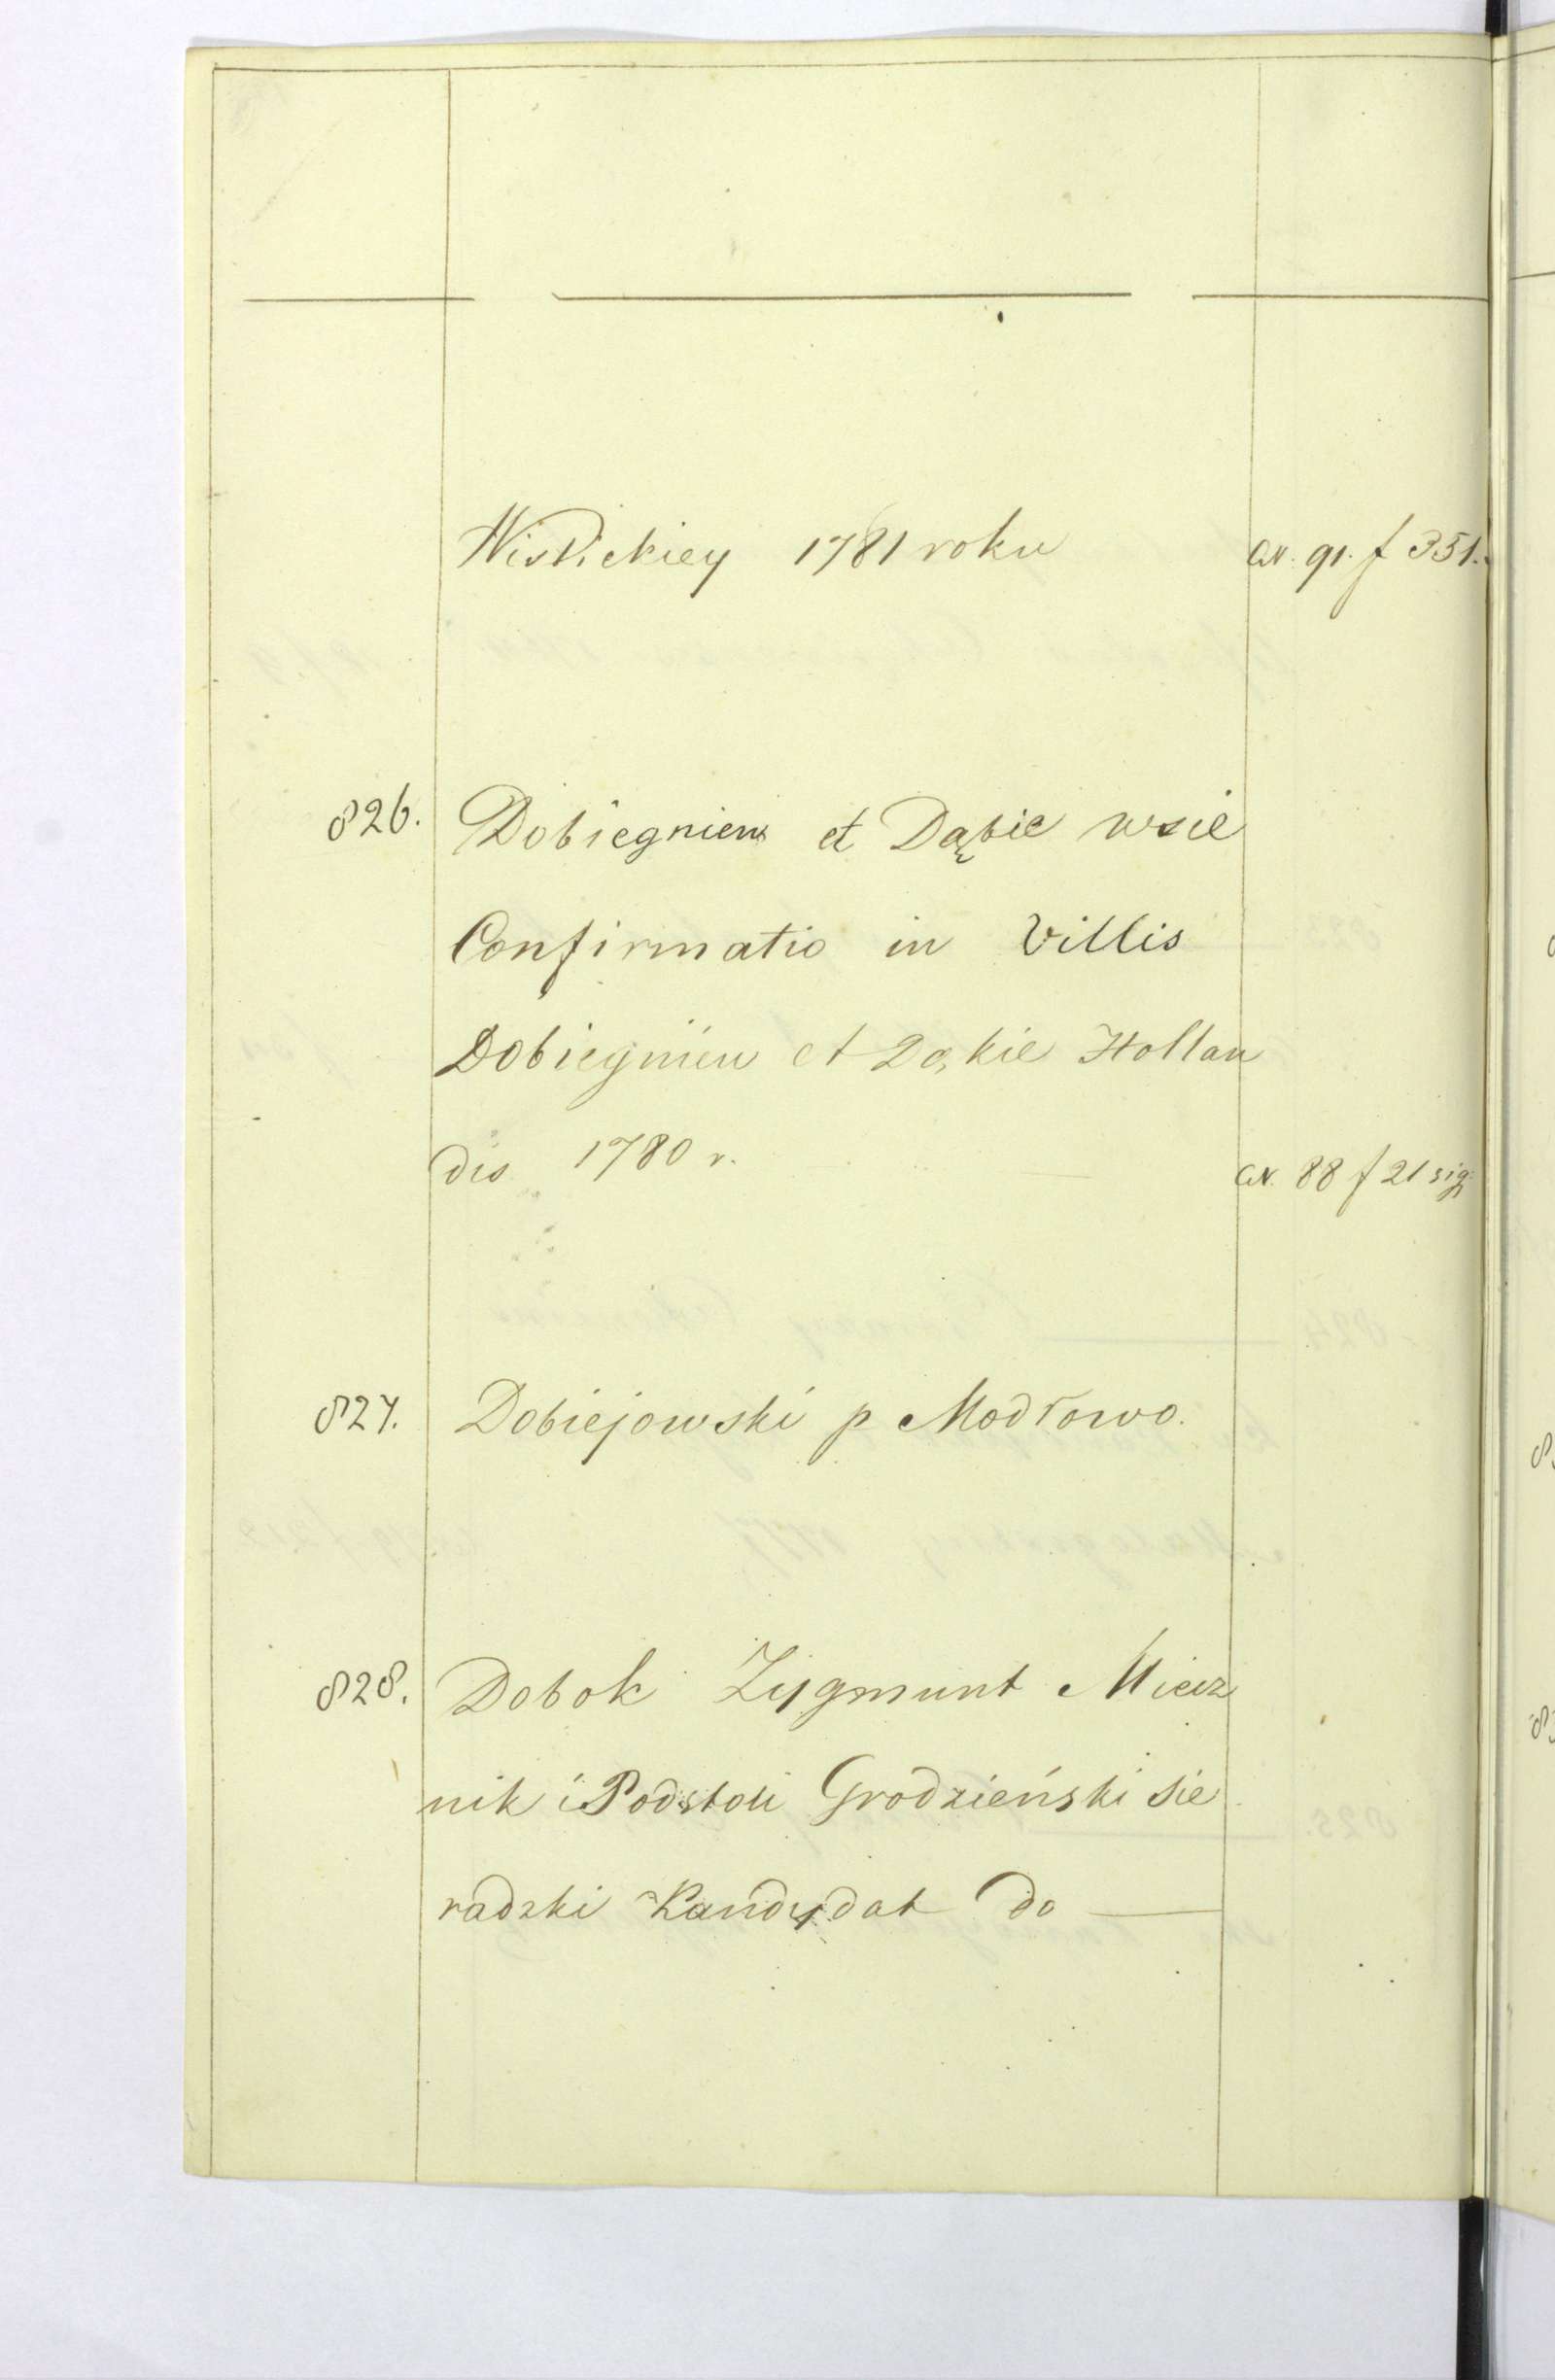 Wislickiey 1781 roku N. 91. f 351.
826. Dobiegniew et Dąbie wsie
Confirmatio in Villis
Dobiegniew et Dąkie Hollan
dis 1780 r. N. 88 f 21 sig:
827. Dobiejowski p Modłowo.
828. Dobok Zygmunt Miecz
nik i Podstoli Grodzieński Sie
radzki Kandydat do —